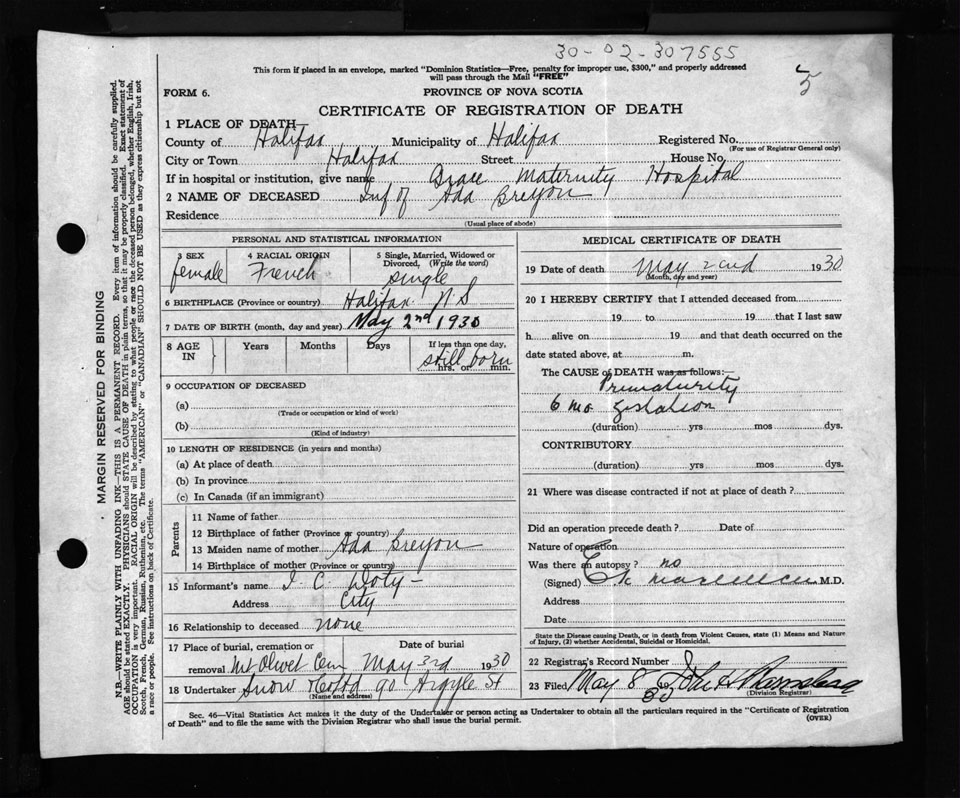 30-02-307555
5
This form if placed in an envelope, marked "Dominion Statistics—Free, penalty for improper use, $300," and properly addressed
will pass through the Mail "FREE"
FORM 6.
PROVINCE OF NOVA SCOTIA
CERTIFICATE OF REGISTRATION OF DEATH
MARGIN RESERVED FOR BINDING
N.B.—WRITE PLAINLY WITH UNFADING INK—THIS IS A PERMANENT RECORD. Every item of information should be carefully supplied.
AGE should be stated EXACTLY. PHYSICIANS should STATE CAUSE OF DEATH in plain terms, so that it may be properly classified. Exact statement of
OCCUPATION is very important. RACIAL ORIGIN will be described by stating to what people or race the deceased person belonged, whether English, Irish,
Scotch, French, German, Russian, Ruthenian, etc. The terms "AMERICAN" or "CANADIAN" SHOULD NOT BE USED as they express citizenship but not
a race or people. See instructions on back of Certificate.
1 PLACE OF DEATH—
County of Halifax Municipality of Halifax Registered No.
(For use of Registrar General only)
City or Town Halifax Street House No.
If in hospital or institution, give name Grace Maternity Hospital
2 NAME OF DECEASED Inf of Ada Greyon
Residence
(Usual place of abode)
PERSONAL AND STATISTICAL INFORMATION
3 SEX
female
4 RACIAL ORIGIN
French
5 Single, Married, Widowed or
Divorced, (Write the word)
single
6 BIRTHPLACE (Province or country) Halifax N S
7 DATE OF BIRTH (month, day and year) May 2nd 1930
8 AGE
IN
Years
Months
Days
If less than one day,
still born
hrs. or min.
9 OCCUPATION OF DECEASED
(a)
(Trade or occupation or kind of work)
(b)
(Kind of industry)
10 LENGTH OF RESIDENCE (in years and months)
(a) At place of death
(b) In province
(c) In Canada (if an immigrant)
Parents
11 Name of father
12 Birthplace of father (Province or country)
13 Maiden name of mother Ada Greyon
14 Birthplace of mother (Province or country)
15 Informant's name I C Doty
Address City
16 Relationship to deceased none
17 Place of burial, cremation or
Date of burial
removal Mt Olivet Cem May 3rd 1930
18 Undertaker Snow &Co Ltd 90 Argyle St
(Name and address)
MEDICAL CERTIFICATE OF DEATH
19 Date of death May 2nd 1930
(Month, day and year)
20 I HEREBY CERTIFY that I attended deceased from
19 to 19 that I last saw
h alive on 19 and that death occurred on the
date stated above, at m.
The CAUSE of DEATH was as follows:—
Prematurity
6 mo gestation
(duration) yrs mos dys.
CONTRIBUTORY
(duration) yrs mos dys.
21 Where was disease contracted if not at place of death ?
Did an operation precede death ? Date of
Nature of operation
Was there an autopsy ? no
(Signed) M.D.
Address
Date
State the Disease causing Death, or in death from Violent Causes, state (1) Means and Nature
of Injury, (2) whether Accidental, Suicidal or Homicidal.
22 Registrar's Record Number
23 Filed May 8 30
(Division Registrar)
Sec. 46—Vital Statistics Act makes it the duty of the Undertaker or person acting as Undertaker to obtain all the particulars required in the "Certificate of Registration
of Death" and to file the same with the Division Registrar who shall issue the burial permit.
(OVER)